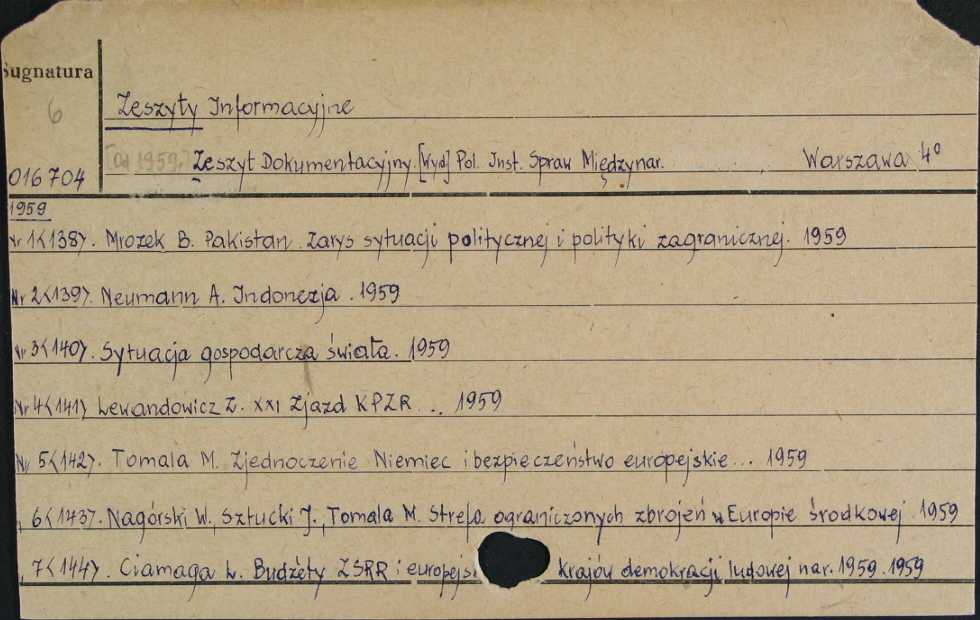 Sygnatura
6
Zeszyty Informacyjne
[Od 1959.] Zeszyt Dokumentacyjny. [Wyd] Pol. Inst. Spraw Międzynar. Warszawa 4°
016704
1959
Nr 1<138>. Mrozek B. Pakistan. Zarys sytuacji politycznej i polityki zagranicznej. 1959
Nr 2<139>. Neumann A. Indonezja. 1959
Nr 3<140>. Sytuacja gospodarcza świata. 1959
Nr 4<141> Lewandowicz Z. XXI Zjazd KPZR ... 1959
Nr 5<142>. Tomala M. Zjednoczenie Niemiec i bezpieczeństwo europejskie... 1959
6<143>. Nagórski W. Sztucki J., Tomala M. Strefa ograniczonych zbrojeń w Europie Środkowej. 1959
7<144>. Ciamaga L. Budżety ZSRR i europejs krajów demokracji ludowej nar. 1959. 1959